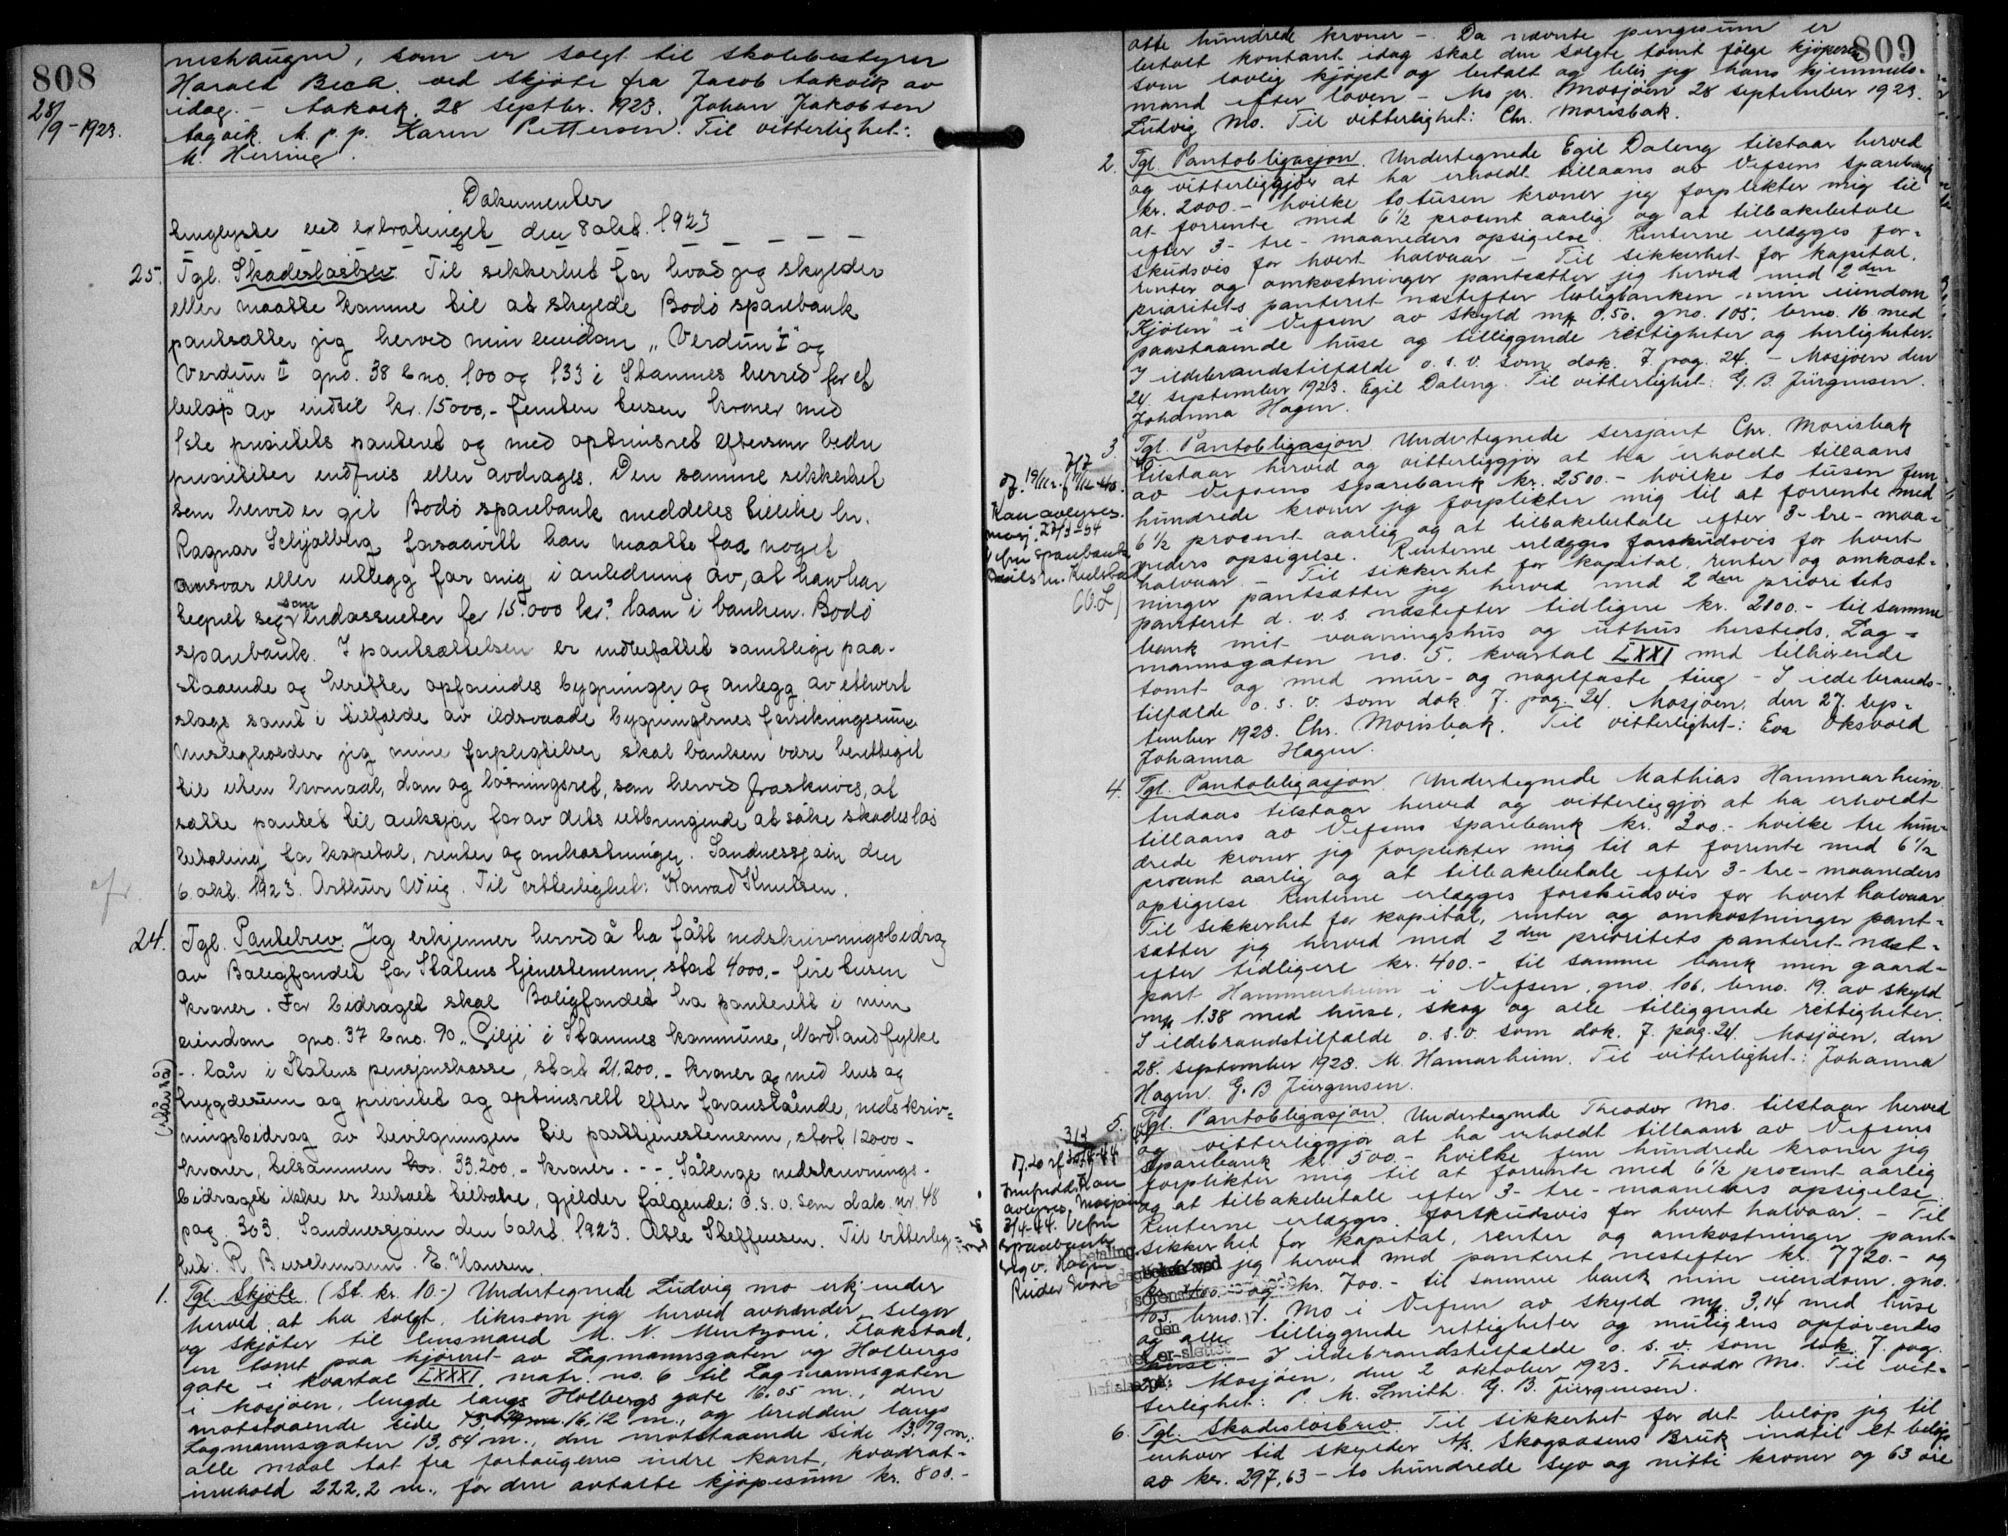 808
28/9-1923.
neshaugen, som er solgt til skolebestyrer
Harald Beck ved skjøte fra Jacob Aakvik av
idag. - Aakvik 28 septbr. 1923. Johan Jakobsen
Aagvik m. p. p. Karen Pettersen. Til vitterlighet:
M. Herring.
Dokumenter
tinglyste ved extratinget den 8 okt. 1923
25. Tgl. Skadeslosbrev. Til sikkerhet for hvad jeg skylder
eller maatte komme til at skylde Bodø sparebank
pantsætter jeg herved min eiendom „Verdun I" og
Verdun II gno. 38 bno. 100 og 133 i Stamnes herred for et
beløp" av indtil kr. 15000,- femten tusen kroner med
1ste prioritets panteret og med optrinsret eftersom bedre
prioriteter indfries eller avdrages. Den samme sikkerhet
som herved er git Bodø sparebank meddeles likeledes hr.
Ragnar Schjølberg forsaavitt han maatte faa noget
ansvar eller utlegg for mig i anledning av, at han har
tegnet seg som endossenter for 15.000 kr? laan i banken. Bodø
sparebank. I pantsættelsen er indbefattet samtlige paa-
staaende og herefter opførendes bygninger og anlegg av ethvert
slags samt i tilfælde av ildsvaade bygningernes forsikringssum
Misligholder jeg mine forpligtelser skal banken være berettiget
til uten lovmaal, dom og løsningsret, som herved fraskrives, at
sætte pantet til auksjon for av dets utbringende at søke skadesløs
betaling for kapital, renter og omkostninger. Sandnessjøen den
6 okt. 1923. Arthur Wiig. Til vitterlighet: Konrad Knutsen.
24. Tgl. Pantebrev. Jeg erkjenner herved å ha fått nedskrivningsbidrag
av Boligfondet for Statens tjenestemenn, stort 4000,- fire tusen
kroner. For bidraget skal Boligfondet ha panterett i min
eiendom gno. 37 bno. 90 „Gilje i Stamnes kommune, Nordland fylke
- . lån i Statens pensjonskasse, stort 21.200.- kroner og med hus og
tryggdesum og prioritet og optrinsrett efter foranstående, nedskriv-
ningsbidrag av bevilgningen til posttjenestemenn, stort 12000-
kroner, tilsammen kr. 33.200,- kroner. - - - Sålenge nedskrivnings-
bidraget ikke er betalt tilbake, gjelder følgende: o. s. v. som dok. nr. 48
pag. 303. Sandnessjøen den 6 okt. 1923. Able Steffensen. Til vitterlig-
het. R. Buschmann. E. Hansen.
1. Tgl. Skjøte. (St. kr. 10.-) Undertegnede Ludvig Mo erkjender
herved at ha solgt, likesom jeg herved avhænder, selger
og skjøter til lensmand M. N. Mentzoni, Flakstad,
en tomt paa hjørnet av Lagmannsgaten og Holbergs
gate i kvartal LXXXI, matr. no. 6 til Lagmannsgaten
i Mosjøen, lengde langs Holbergs gate 16.05 m., den
motstaaende side 16,12 m., og bredden langs
Lagmannsgaten 13,84 m., den motstaaende side 13,79 m.;
alle maal tat fra fortaugens indre kant, kvadrat-
innhold 222,2 m., for den avtalte kjøpesum kr. 800.-
809
otte hundrede kroner -. Da nævnte pengesum er
betalt kontant idag skal den solgte tomt følge kjøperen
som lovlig kjøpt og betalt og blir jeg hans hjemmels-
mand efter loven - Mo pr. Mosjøen 28 september 1923.
Ludvig Mo. Til vitterlighet: Chr. Morisbak.
2. Tgl. Pantobligasjon. Undertegnede Egil Daleng tilstaar herved
og vitterliggjør at ha erholdt tillaans av Vefsens sparebank
kr. 2000.- hvilke to tusen kroner jeg forplikter mig til
at forrente med 6 1/2 procent aarlig og at tilbakebetale
efter 3- tre- maaneders opsigelse. Renterne erlægges for-
skudsvis for hvert halvaar - Til sikkerhet for kapital,
renter og omkostninger pantsætter jeg herved med 2den
prioritets panteret næstefter boligbanken min eiendom
„Kjølen" i Vefsen av skyld mk 0.50. gno. 105, brno. 16 med
paastaaende huse og tilliggende rettigheter og herligheter.
I ildebrandstilfælde o. s. v. som dok. 7 pag. 24. - Mosjøen den
24 september 1923. Egil Daleng. Til vitterlighet: G. B. Jürgensen.
Johanna Hagen.
3. Tgl. Pantobligasjon. Undertegnede sersjant Chr. Morisbak
tilstaar herved og vitterliggjør at ha erholdt tillaans
av Vefsens sparebank kr. 2500.- hvilke to tusen fem
hundrede kroner jeg forplikter mig til at forrente med
6 1/2 procent aarlig og at tilbakebetale efter 3- tre- maa-
neders opsigelse. Renterne erlægges forskudsvis for hvert
halvaar. - Til sikkerhet for kapital, renter og omkost-
ninger pantsætter jeg herved med 2den prioritets
panteret d. v. s. næstefter tidligere kr. 2100.- til samme
bank mit vaaningshus og uthus hersteds, Lag-
mannsgaten no. 5. kvartal LXXI med tilhørende
tomt og med mur- og nagelfaste ting - I ildebrands-
tilfælde o. s. v. som dok 7. pag. 24. Mosjøen, den 27. sep-
tember 1923. Chr. Morisbak. Til vitterlighet: Eva Oksvold
Johanna Hagen.
4. Tgl. Pantobligasjon. Undertegnede Mathias Hammarheim
Andaas tilstaar herved og vitterliggjør at ha erholdt
tillaans av Vefsens sparebank kr. 300.- hvilke tre hun-
drede kroner jeg forplikter mig til at forrente med 6 1/2
procent aarlig og at tilbakebetale efter 3- tre- maaneders
opsigelse Renterne erlægges forskudsvis for hvert halvaar.
Til sikkerhet for kapital, renter og omkostninger pant-
sætter jeg herved med 2den prioritets panteret næst-
efter tidligere kr. 400.- til samme bank min gaard-
part Hammarheim i Vefsen, gno. 106, brno. 19. av skyld
mk 1.38 med huse, skog og alle tilliggende rettigheter.
I ildebrandstilfælde o. s. v. som dok. 7. pag. 24. Mosjøen, den
28. september 1923. M. Hamarheim. Til vitterlighet: Johanna
Hagen. G. B Jürgensen.
5. Tgl. Pantobligasjon. Undertegnede Theodor Mo. tilstaar herved
og vitterliggjør at ha erholdt tillaans av Vefsens
sparebank kr. 500.- hvilke fem hundrede kroner jeg
forplikter mig til at forrente med 6 1/2 procent aarlig
og at tilbakebetale efter 3- tre- maaneders opsigelse.
Renterne erlægges forskudsvis for hvert halvaar. - Til
sikkerhet for kapital, renter og omkostninger pant-
sætter jeg herved med panteret nestefter kr. 7720.- og
og kr. 700.- til samme bank min eiendom gno.
103, brno. 1. Mo i Vefsen av skyld mk. 3,14 med huse
og alle tilliggende rettigheter og muligens opførendes
huse. - I ildebrandstilfælde o. s. v. som dok. 7. pag.
24. Mosjøen, den 2 oktober 1923. Theodor Mo. Til vit-
terlighet: P. M. Smith. G. B. Jürgensen.
6. Tgl. Skadesløsbrev. Til sikkerhet for det beløp jeg til
enhver tid skylder A/S. Skogsaasens Bruk indtil et beløp
av kr. 297,63 - to hundrede syv og nitti kroner og 63 øre